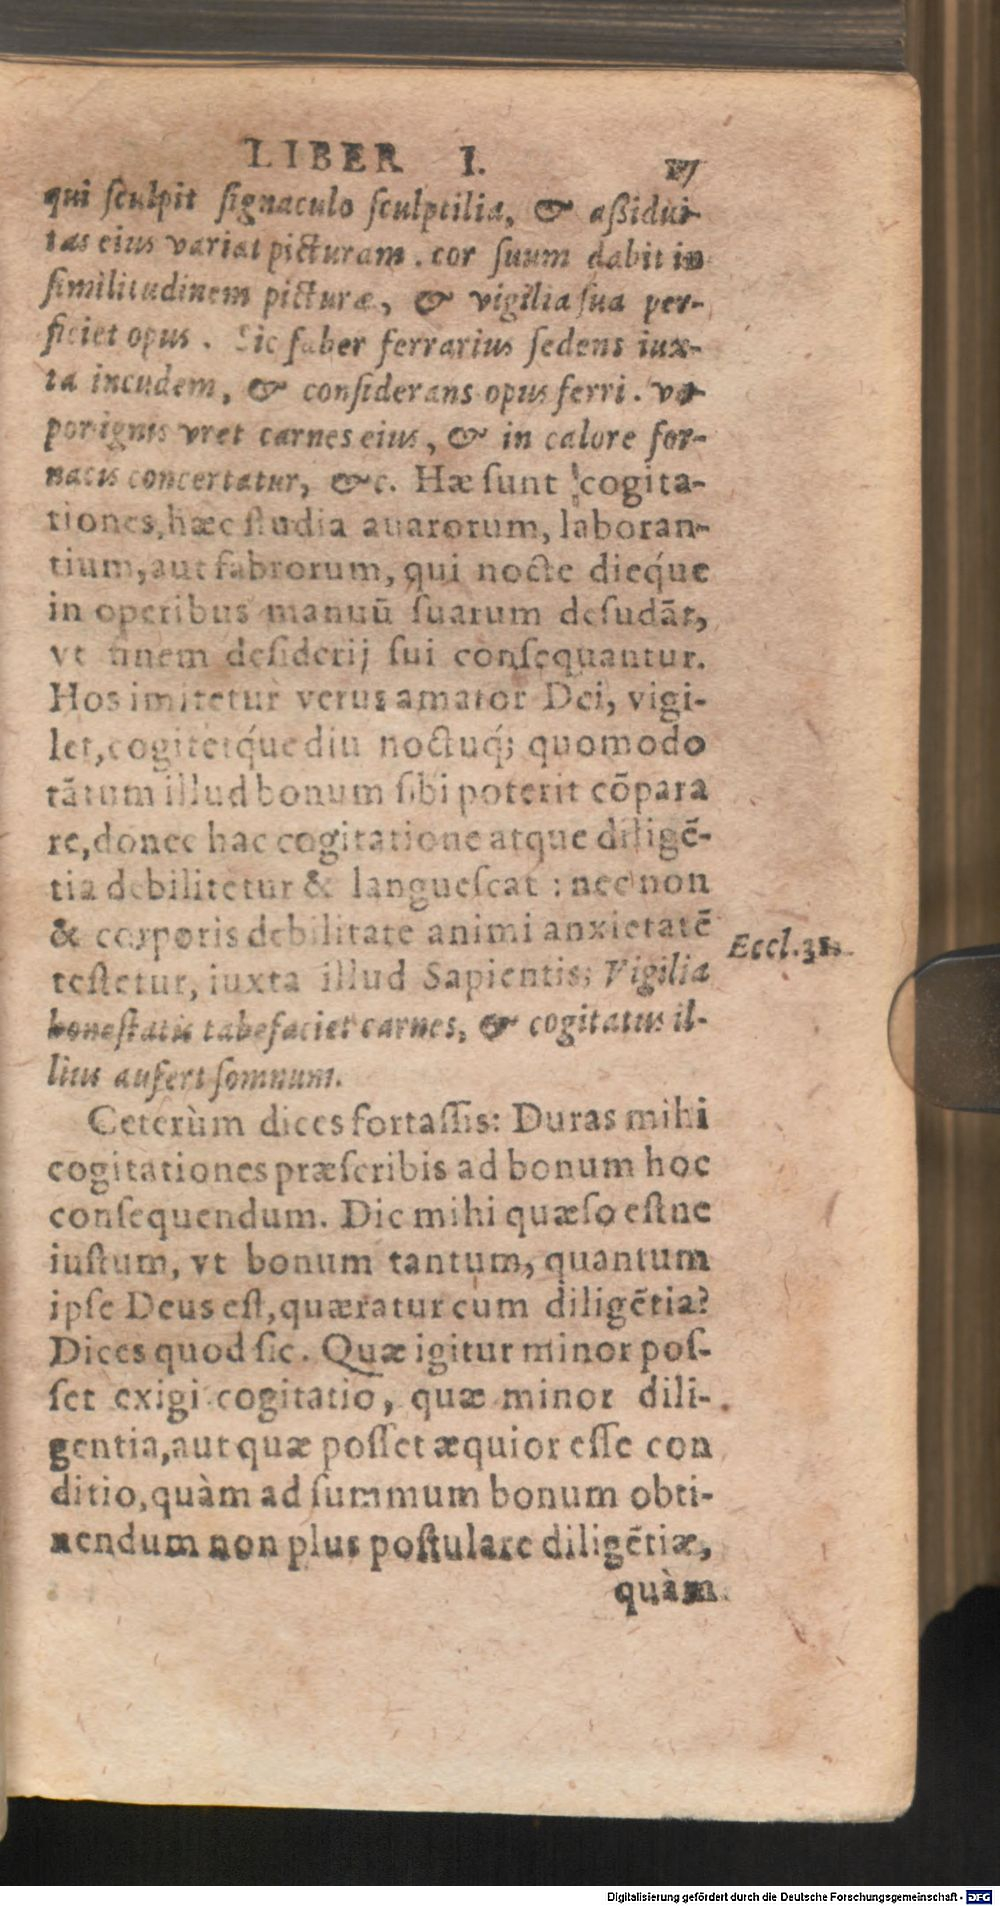 LIBER I. 17
qui ſculpit ſignaculo ſculptilia, & aßidui-
tas eius variat picturam. cor ſuum dabit in
ſimilitudinem picturæ, & vigilia ſua per-
ficiet opus. Sic faber ferrarius ſedens iux-
ta incudem, & conſiderans opus ferri. va-
por ignis vret carnes eius, & in calore for-
nacis concertatur, &c. Hæ ſunt cogita-
tiones, hæc ſtudia auarorum, laboran-
tium, aut fabrorum, qui nocte dieq́ue
in operibus manuū ſuarum deſudāt,
vt finem deſiderij ſui conſequantur.
Hos imitetur verus amator Dei, vigi-
let, cogitetq́ue diu noctuq́; quomodo
tātum illud bonum ſibi poterit cōpara
re, donec hac cogitatione atque diligē-
tia debilitetur & langueſcat: nec non
& corporis debilitate animi anxietatē
teſtetur, iuxta illud Sapientis; Vigilia
honeſtatis tabefaciet carnes, & cogitatus il-
lius aufert ſomnum.
Eccl. 31.
Ceterùm dices fortaſſis: Duras mihi
cogitationes præſcribis ad bonum hoc
conſequendum. Dic mihi quæſo eſtne
iuſtum, vt bonum tantum, quantum
ipſe Deus eſt, quæratur cum diligētia?
Dices quod ſic. Quæ igitur minor poſ-
ſet exigi cogitatio, quæ minor dili-
gentia, aut quæ poſſet æquior eſſe con
ditio, quàm ad ſummum bonum obti-
nendum non plus poſtulare diligētiæ,
quàm
Digitalisierung gefördert durch die Deutsche Forschungsgemeinschaft - DFG